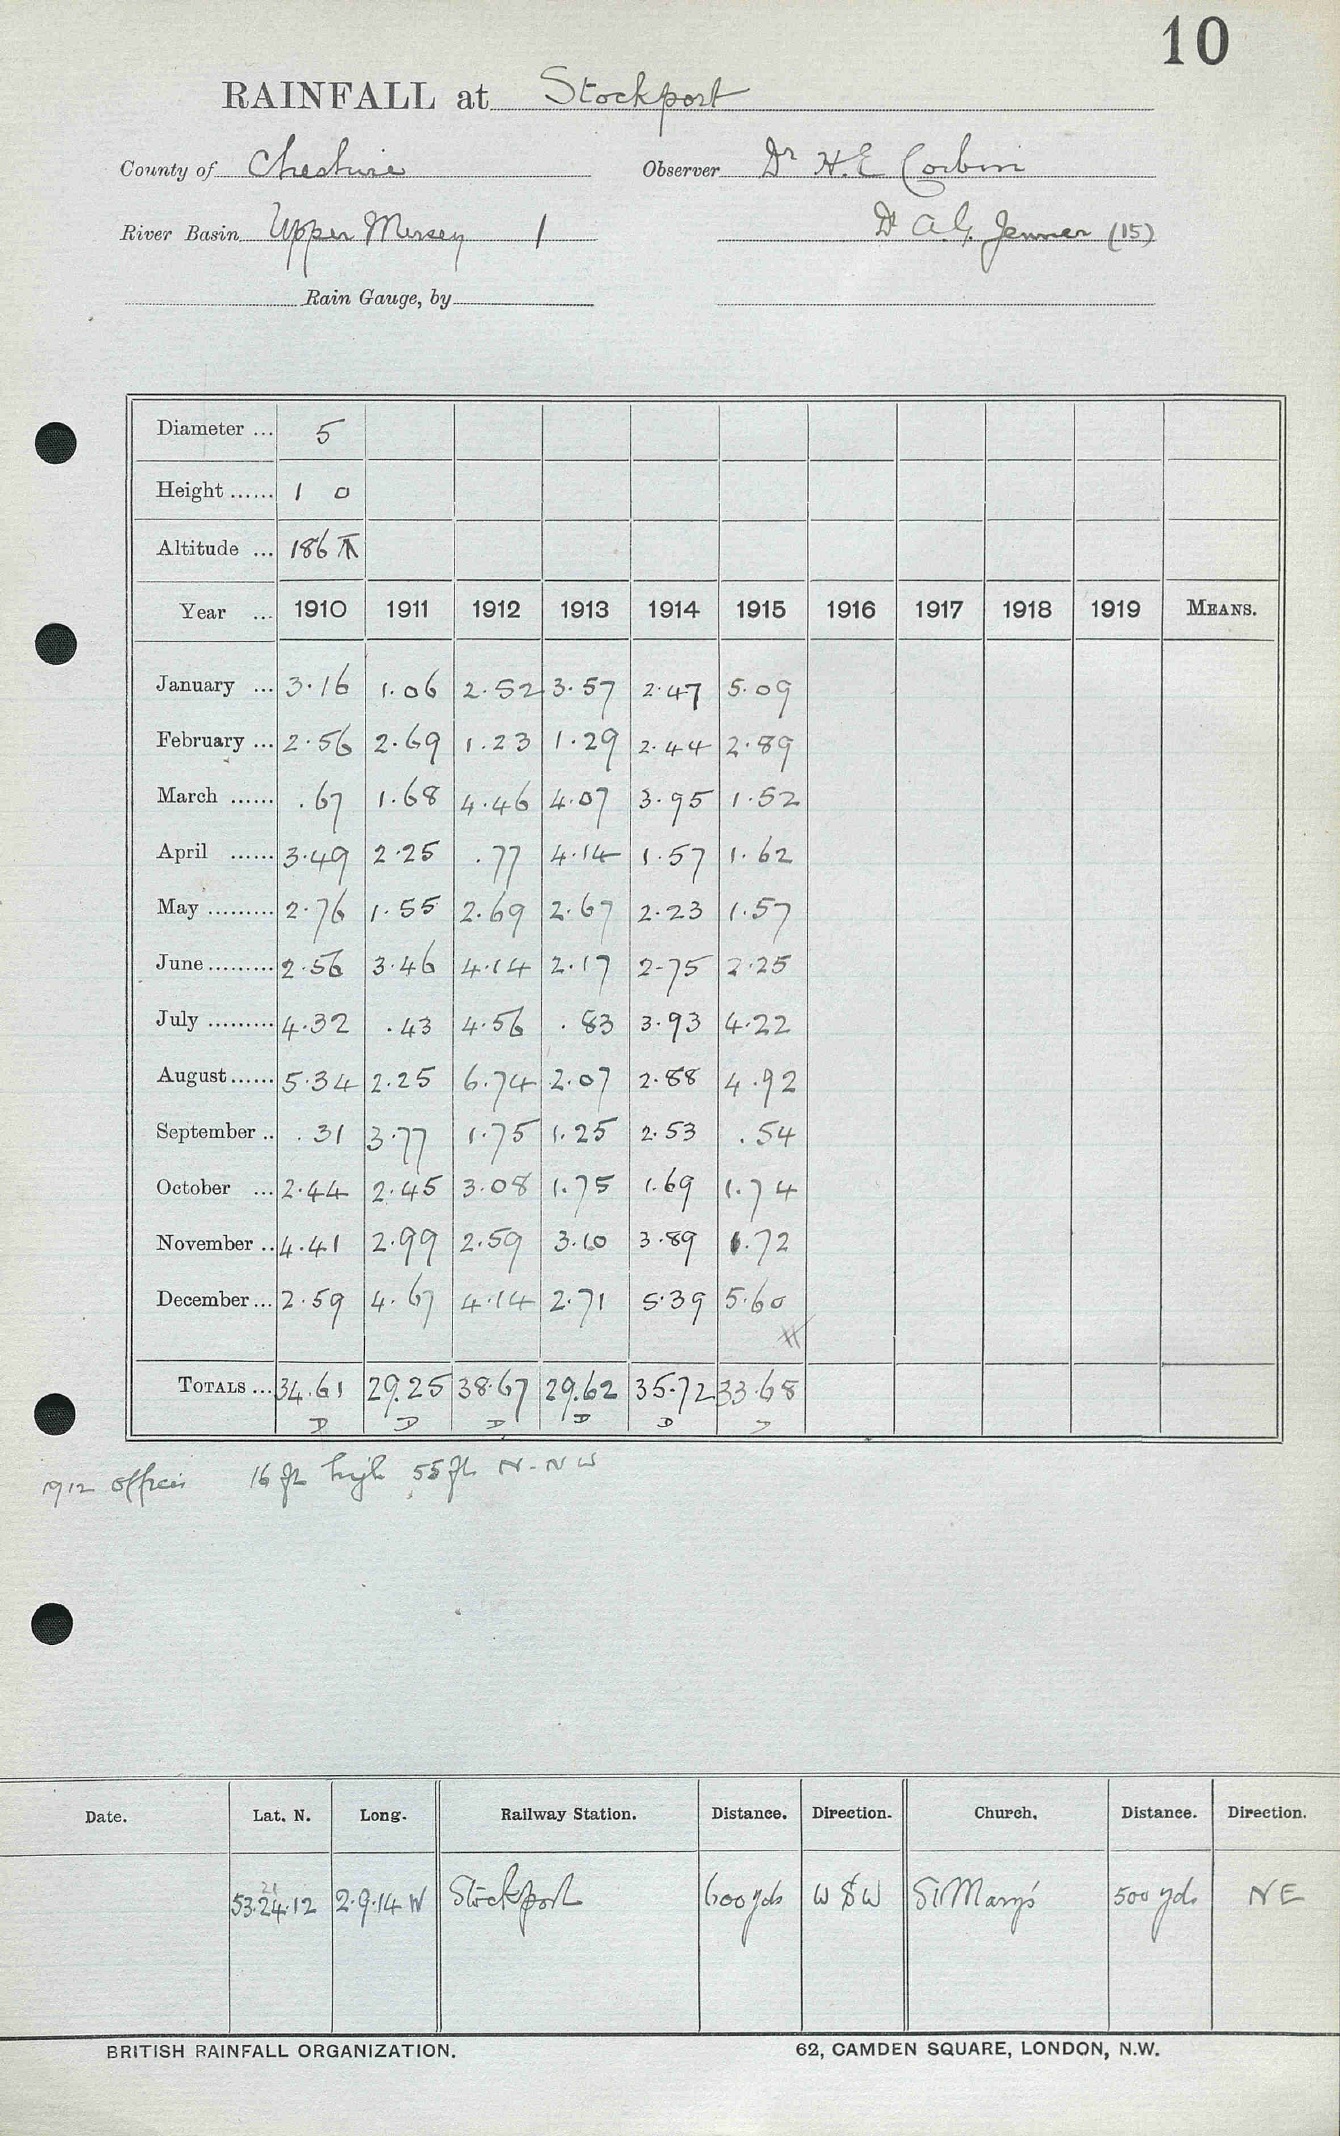 10
RAINFALL at Stockport
County of Cheshire Observer Dr H.E Corbin
River Basin Upper Mersey 1 Dr A.G. Jenner (15)
Rain Gauge, by
Diameter ... 5
Height ...... 1 0
Altitude ... 186
Year ... 1910 1911 1912 1913 1914 1915 1916 1917 1918 1919 MEANS.
January ... 3.16 1.06 2.52 3.57 2.47 5.09
February ... 2.56 2.69 1.23 1.29 2.44 2.89
March ...... .67 1.68 4.46 4.07 3.95 1.52
April ...... 3.49 2.25 .77 4.14 1.57 1.62
May ......... 2.76 1.55 2.69 2.67 2.23 1.57
June ......... 2.56 3.46 4.14 2.17 2.75 2.25
July ......... 4.32 .43 4.56 .83 3.93 4.22
August ...... 5.34 2.25 6.74 2.07 2.88 4.92
September .. .31 3.77 1.75 1.25 2.53 .54
October ... 2.44 2.45 3.08 1.75 1.69 1.74
November .. 4.41 2.99 2.59 3.10 3.89 1.72
December ... 2.59 4.67 4.14 2.71 5.39 5.60
TOTALS ... 34.61 29.25 38.67 29.62 35.72 33.68
D D D D D D
1912 offices 16 ft high 55 ft N-NW
Date. Lat. N. Long. Railway Station. Distance. Direction. Church. Distance. Direction.
21
53.24.12 2.9.14 W Stockport 600 yds W S W St Mary's 500 yds NE
BRITISH RAINFALL ORGANIZATION. 62, CAMDEN SQUARE, LONDON, N.W.